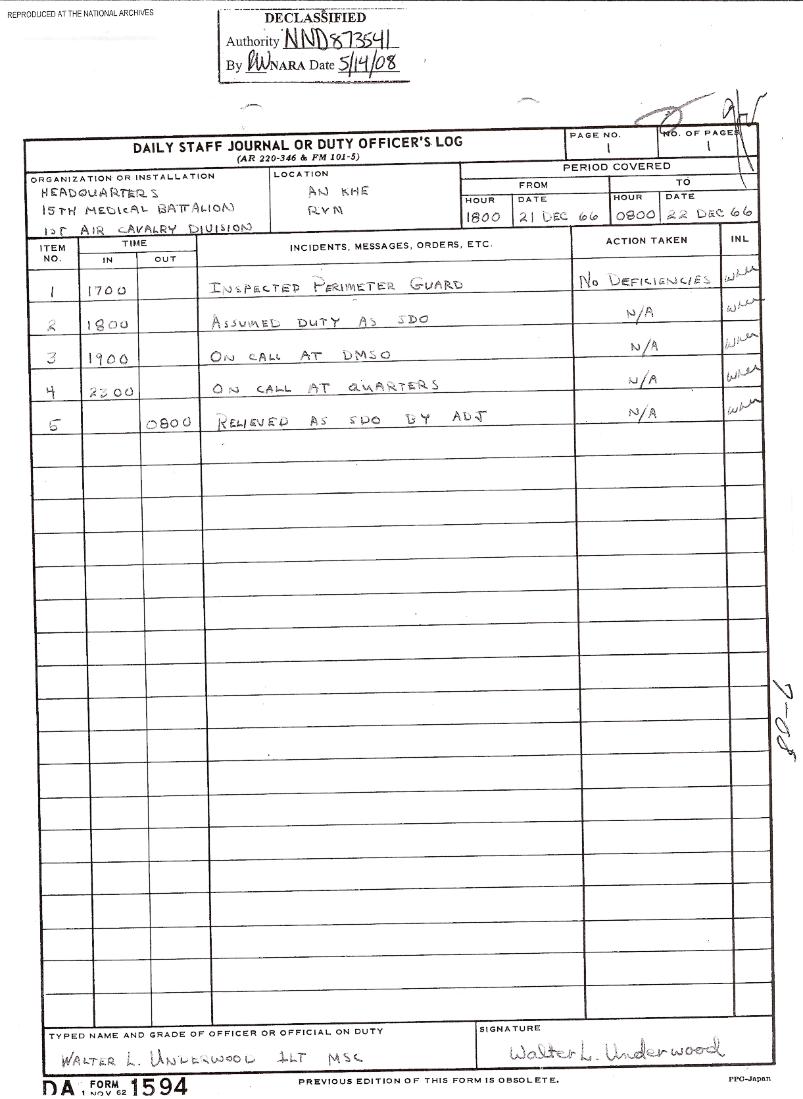 REPRODUCED AT THE NATIONAL ARCHIVES
DECLASSIFIED
Authority NND873541
By NARA Date 5/14/08
DAILY STAFF JOURNAL OR DUTY OFFICER'S LOG
(AR 220-346 & FM 101-5)
PAGE NO.
1
NO. OF PAGES
1
ORGANIZATION OR INSTALLATION
HEADQUARTERS
15TH MEDICAL BATTALION
1ST AIR CAVALRY DIVISION
LOCATION
AN KHE
RVN
PERIOD COVERED
FROM TO
HOUR DATE HOUR DATE
1800 21 DEC 66 0800 22 DEC 66
ITEM NO. TIME INCIDENTS, MESSAGES, ORDERS, ETC. ACTION TAKEN INL
IN OUT
1 1700 INSPECTED PERIMETER GUARD NO DEFICIENCIES
2 1800 ASSUMED DUTY AS SDO N/A
3 1900 ON CALL AT DMSO N/A
4 2300 ON CALL AT QUARTERS N/A
5 0800 RELIEVED AS SDO BY ADJ N/A
7-08
TYPED NAME AND GRADE OF OFFICER OR OFFICIAL ON DUTY
WALTER L. UNDERWOOD 1LT MSC
SIGNATURE
Walter L. Underwood
DA FORM 1594
1 NOV 62
PREVIOUS EDITION OF THIS FORM IS OBSOLETE.
PPC-Japan